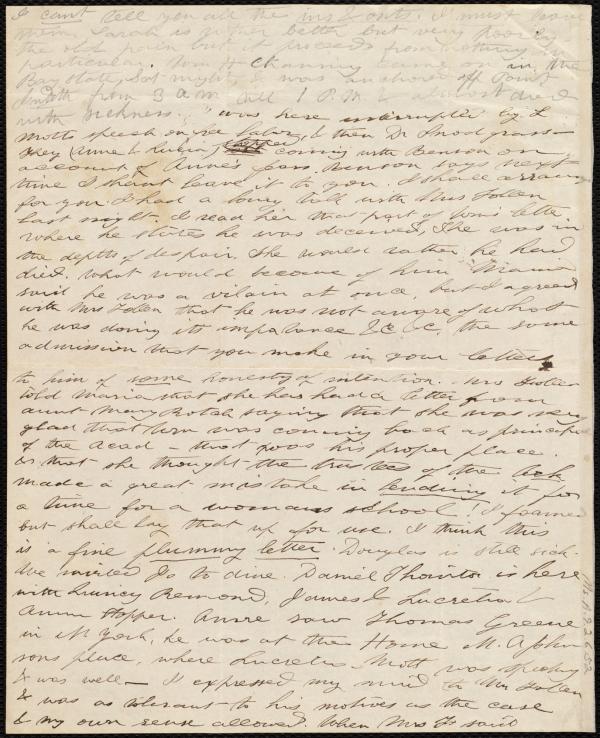 I can't tell you all the ins & outs. I must have
Sarah is rather better but very poorly
the old pain but it proceeds from nothing in
particular. Wm H Channing came on in the
Bay State, Sat night, & was anchored off Point
Judith from 3 a.m. till 1 P.M. & almost died
with sickness. I was here interrupted by L
Motts speech on free labor, & then Dr Snodgrass
They (Anne & Lucia) coming with Benson on
account of Anne's fears Benson says next
time I shant leave it to you. I shall arrange
for you. I had a long talk with Mrs Follen
last night. I read her that part of Tom's letter
where he states he was deceived, She was in
the depths of despair, She would rather he had
died. What would become of him. Maria
said he was a vilain at once, but I agreed
with Mrs Follen that he was not aware of what
he was doing its importance &c &c, the same
admission that you make in your letters
to him of some honesty of intention. Mrs Follen
told Maria that she has had a letter from
aunt Mary Rotch saying that she was very
glad that Tom was coming back as principal
of the Acad - that was his proper place.
& that she thought the trustees of the Ach
made a great mistake in lending it for
a time for a womans school! I foamed
but shall lay that up for use. I think this
is a fine plummy letter. Douglas is still sick.
We invited Jo to dine. Daniel Thornton is here
with Quincy Remond, James & Lucretia &
Anna Hopper. Anne saw Thomas Greene
in N York, he was at the Home M. A John
sons place, where Lucretia Mott was speaking
& was well - I expressed my mind to Mrs Follen
& was as tolerant to his motives as the case
& my own sense allowed. When Mrs F. said